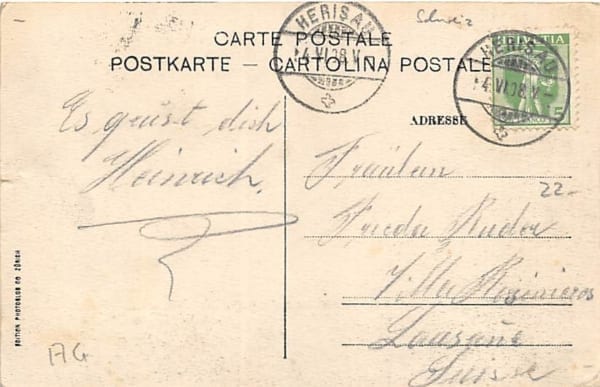 Schweiz
CARTE POSTALE
POSTKARTE — CARTOLINA POSTALE
HERISAU
14.VI.08.V
HELVETIA
5
HERISAU
14.VI.08.V
Es grüst dich
Heinrich.
ADRESSE
Fräulein
Frieda
Villa
Lausane
Suisse
22-
EDITION PHOTOGLOB CO ZÜRICH